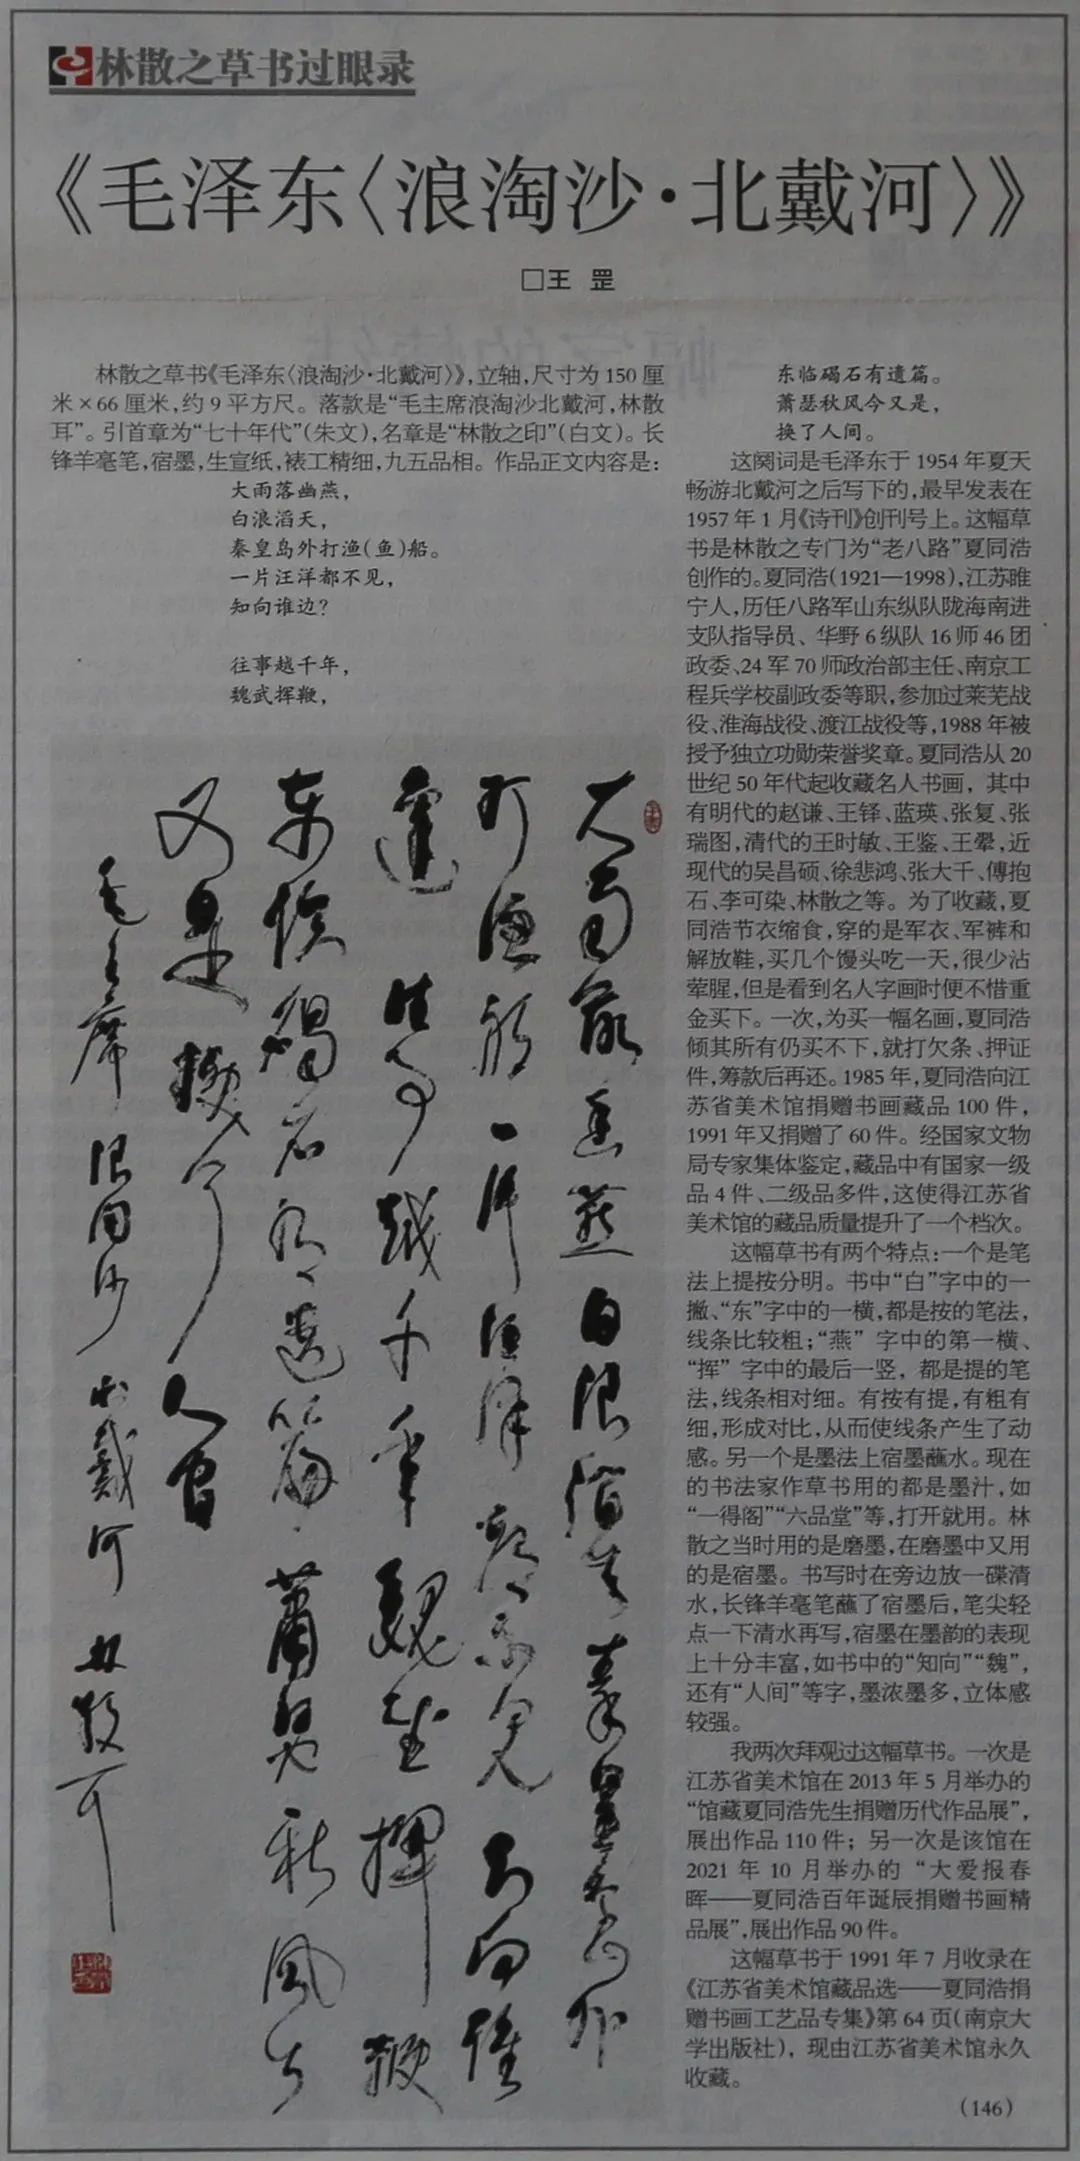 林散之草书过眼录
《毛泽东〈浪淘沙·北戴河〉》
□王 罡
林散之草书《毛泽东〈浪淘沙·北戴河〉》，立轴，尺寸为150厘
米×66厘米，约9平方尺。落款是“毛主席浪淘沙北戴河，林散
耳”。引首章为“七十年代”（朱文），名章是“林散之印”（白文）。长
锋羊毫笔，宿墨，生宣纸，裱工精细，九五品相。作品正文内容是：
大雨落幽燕，
白浪滔天，
秦皇岛外打渔（鱼）船。
一片汪洋都不见，
知向谁边？
往事越千年，
魏武挥鞭，
东临碣石有遗篇。
萧瑟秋风今又是，
换了人间。
这阕词是毛泽东于1954年夏天
畅游北戴河之后写下的，最早发表在
1957年1月《诗刊》创刊号上。这幅草
书是林散之专门为“老八路”夏同浩
创作的。夏同浩（1921—1998），江苏睢
宁人，历任八路军山东纵队陇海南进
支队指导员、华野6纵队16师46团
政委、24军70师政治部主任、南京工
程兵学校副政委等职，参加过莱芜战
役、淮海战役、渡江战役等，1988年被
授予独立功勋荣誉奖章。夏同浩从20
世纪50年代起收藏名人书画，其中
有明代的赵谦、王铎、蓝瑛、张复、张
瑞图，清代的王时敏、王鉴、王翚，近
现代的吴昌硕、徐悲鸿、张大千、傅抱
石、李可染、林散之等。为了收藏，夏
同浩节衣缩食，穿的是军衣、军裤和
解放鞋，买几个馒头吃一天，很少沾
荤腥，但是看到名人字画时便不惜重
金买下。一次，为买一幅名画，夏同浩
倾其所有仍买不下，就打欠条、押证
件，筹款后再还。1985年，夏同浩向江
苏省美术馆捐赠书画藏品100件，
1991年又捐赠了60件。经国家文物
局专家集体鉴定，藏品中有国家一级
品4件、二级品多件，这使得江苏省
美术馆的藏品质量提升了一个档次。
这幅草书有两个特点：一个是笔
法上提按分明。书中“白”字中的一
撇、“东”字中的一横，都是按的笔法，
线条比较粗；“燕”字中的第一横、
“挥”字中的最后一竖，都是提的笔
法，线条相对细。有按有提，有粗有
细，形成对比，从而使线条产生了动
感。另一个是墨法上宿墨蘸水。现在
的书法家作草书用的都是墨汁，如
“一得阁”“六品堂”等，打开就用。林
散之当时用的是磨墨，在磨墨中又用
的是宿墨。书写时在旁边放一碟清
水，长锋羊毫笔蘸了宿墨后，笔尖轻
点一下清水再写，宿墨在墨韵的表现
上十分丰富，如书中的“知向”“魏”，
还有“人间”等字，墨浓墨多，立体感
较强。
我两次拜观过这幅草书。一次是
江苏省美术馆在2013年5月举办的
“馆藏夏同浩先生捐赠历代作品展”，
展出作品110件；另一次是该馆在
2021年10月举办的“大爱报春
晖——夏同浩百年诞辰捐赠书画精
品展”，展出作品90件。
这幅草书于1991年7月收录在
《江苏省美术馆藏品选——夏同浩捐
赠书画工艺品专集》第64页（南京大
学出版社），现由江苏省美术馆永久
收藏。
（146）
大雨落幽燕白浪滔天秦皇島外
打漁船一片汪洋都不見知向誰
邊往事越千年魏武揮鞭
東臨碣石有遺篇蕭瑟秋風今
又是換了人間
毛主席浪淘沙北戴河林散耳